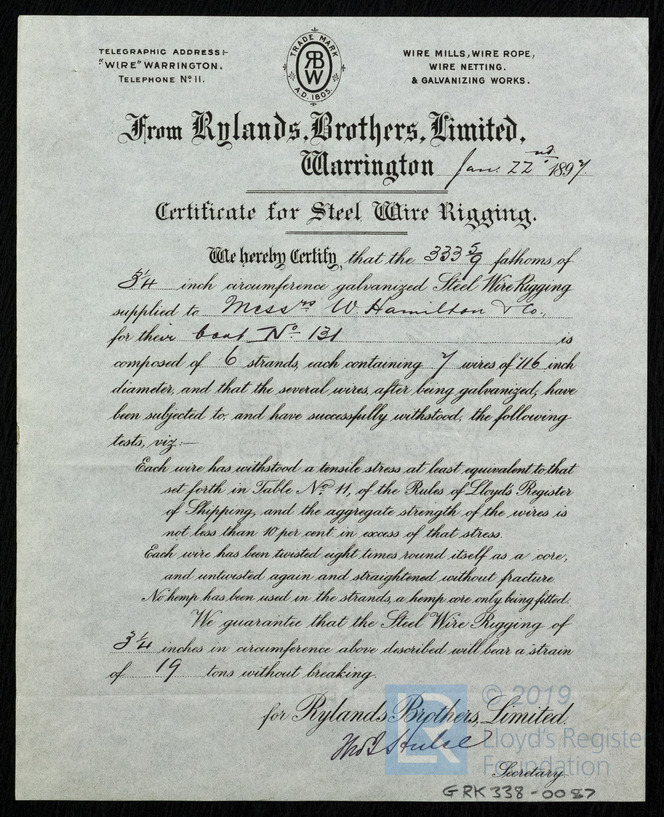 TELEGRAPHIC ADDRESS:-
"WIRE" WARRINGTON.
TELEPHONE No 11.
TRADE MARK
RB
W
A.D. 1805.
WIRE MILLS, WIRE ROPE,
WIRE NETTING.
& GALVANIZING WORKS.
From Rylands, Brothers, Limited,
Warrington Jan. 22nd 1897
Certificate for Steel Wire Rigging.
We hereby Certify, that the 333 5/9 fathoms of
3 1/4 inch circumference galvanized Steel Wire Rigging
supplied to Messrs W. Hamilton & Co.,
for their boat No 131 is
composed of 6 strands, each containing 7 wires of .116 inch
diameter, and that the several wires, after being galvanized, have
been subjected to, and have successfully withstood, the following
tests, viz:—
Each wire has withstood a tensile stress at least equivalent to that
set forth in Table No 11, of the Rules of Lloyd's Register
of Shipping, and the aggregate strength of the wires is
not less than 10 per cent in excess of that stress.
Each wire has been twisted eight times round itself as a core,
and untwisted again and straightened without fracture
No hemp has been used in the strands, a hemp core only being fitted.
We guarantee that the Steel Wire Rigging of
3 1/4 inches in circumference above described will bear a strain
of 19 tons without breaking.
for Rylands Brothers, Limited.
Secretary
GRK338-0087
© 2019
LR
Lloyd's Register
Foundation